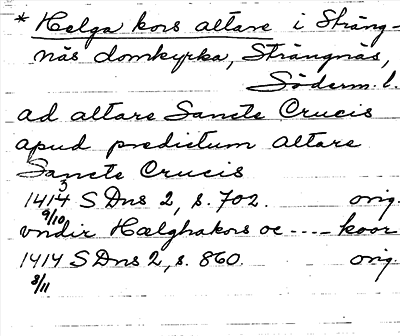 * Helga kors altare i Sträng-
näs domkyrka, Strängnäs,
Söderm. l.
ad altare Sancte Crucis
apud predictum altare
Sancte Crucis
1413 S Dns 2, s. 702. orig.
9/10
vndir Hælghakors oc ---- koor
1414 S Dns 2, s. 860. orig.
3/11